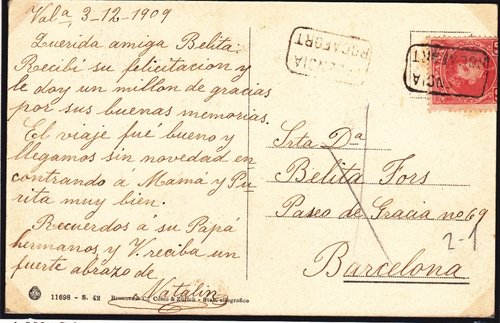 Vala 3-12-1909
Querida amiga Belita:
Recibí su felicitacion y
le doy un millon de gracias
por sus buenas memorias.
El viaje fue bueno y
llegamos sin novedad en
contrando á Mamá y Pu
rita muy bien.
Recuerdos á su Papá
hermanos y V. reciba un
fuerte abrazo de
Natalin
ROCAFORT
Srta Da
Belita Fors
Paseo de Gracia no 69
2-1
Barcelona
11698 - S. 42